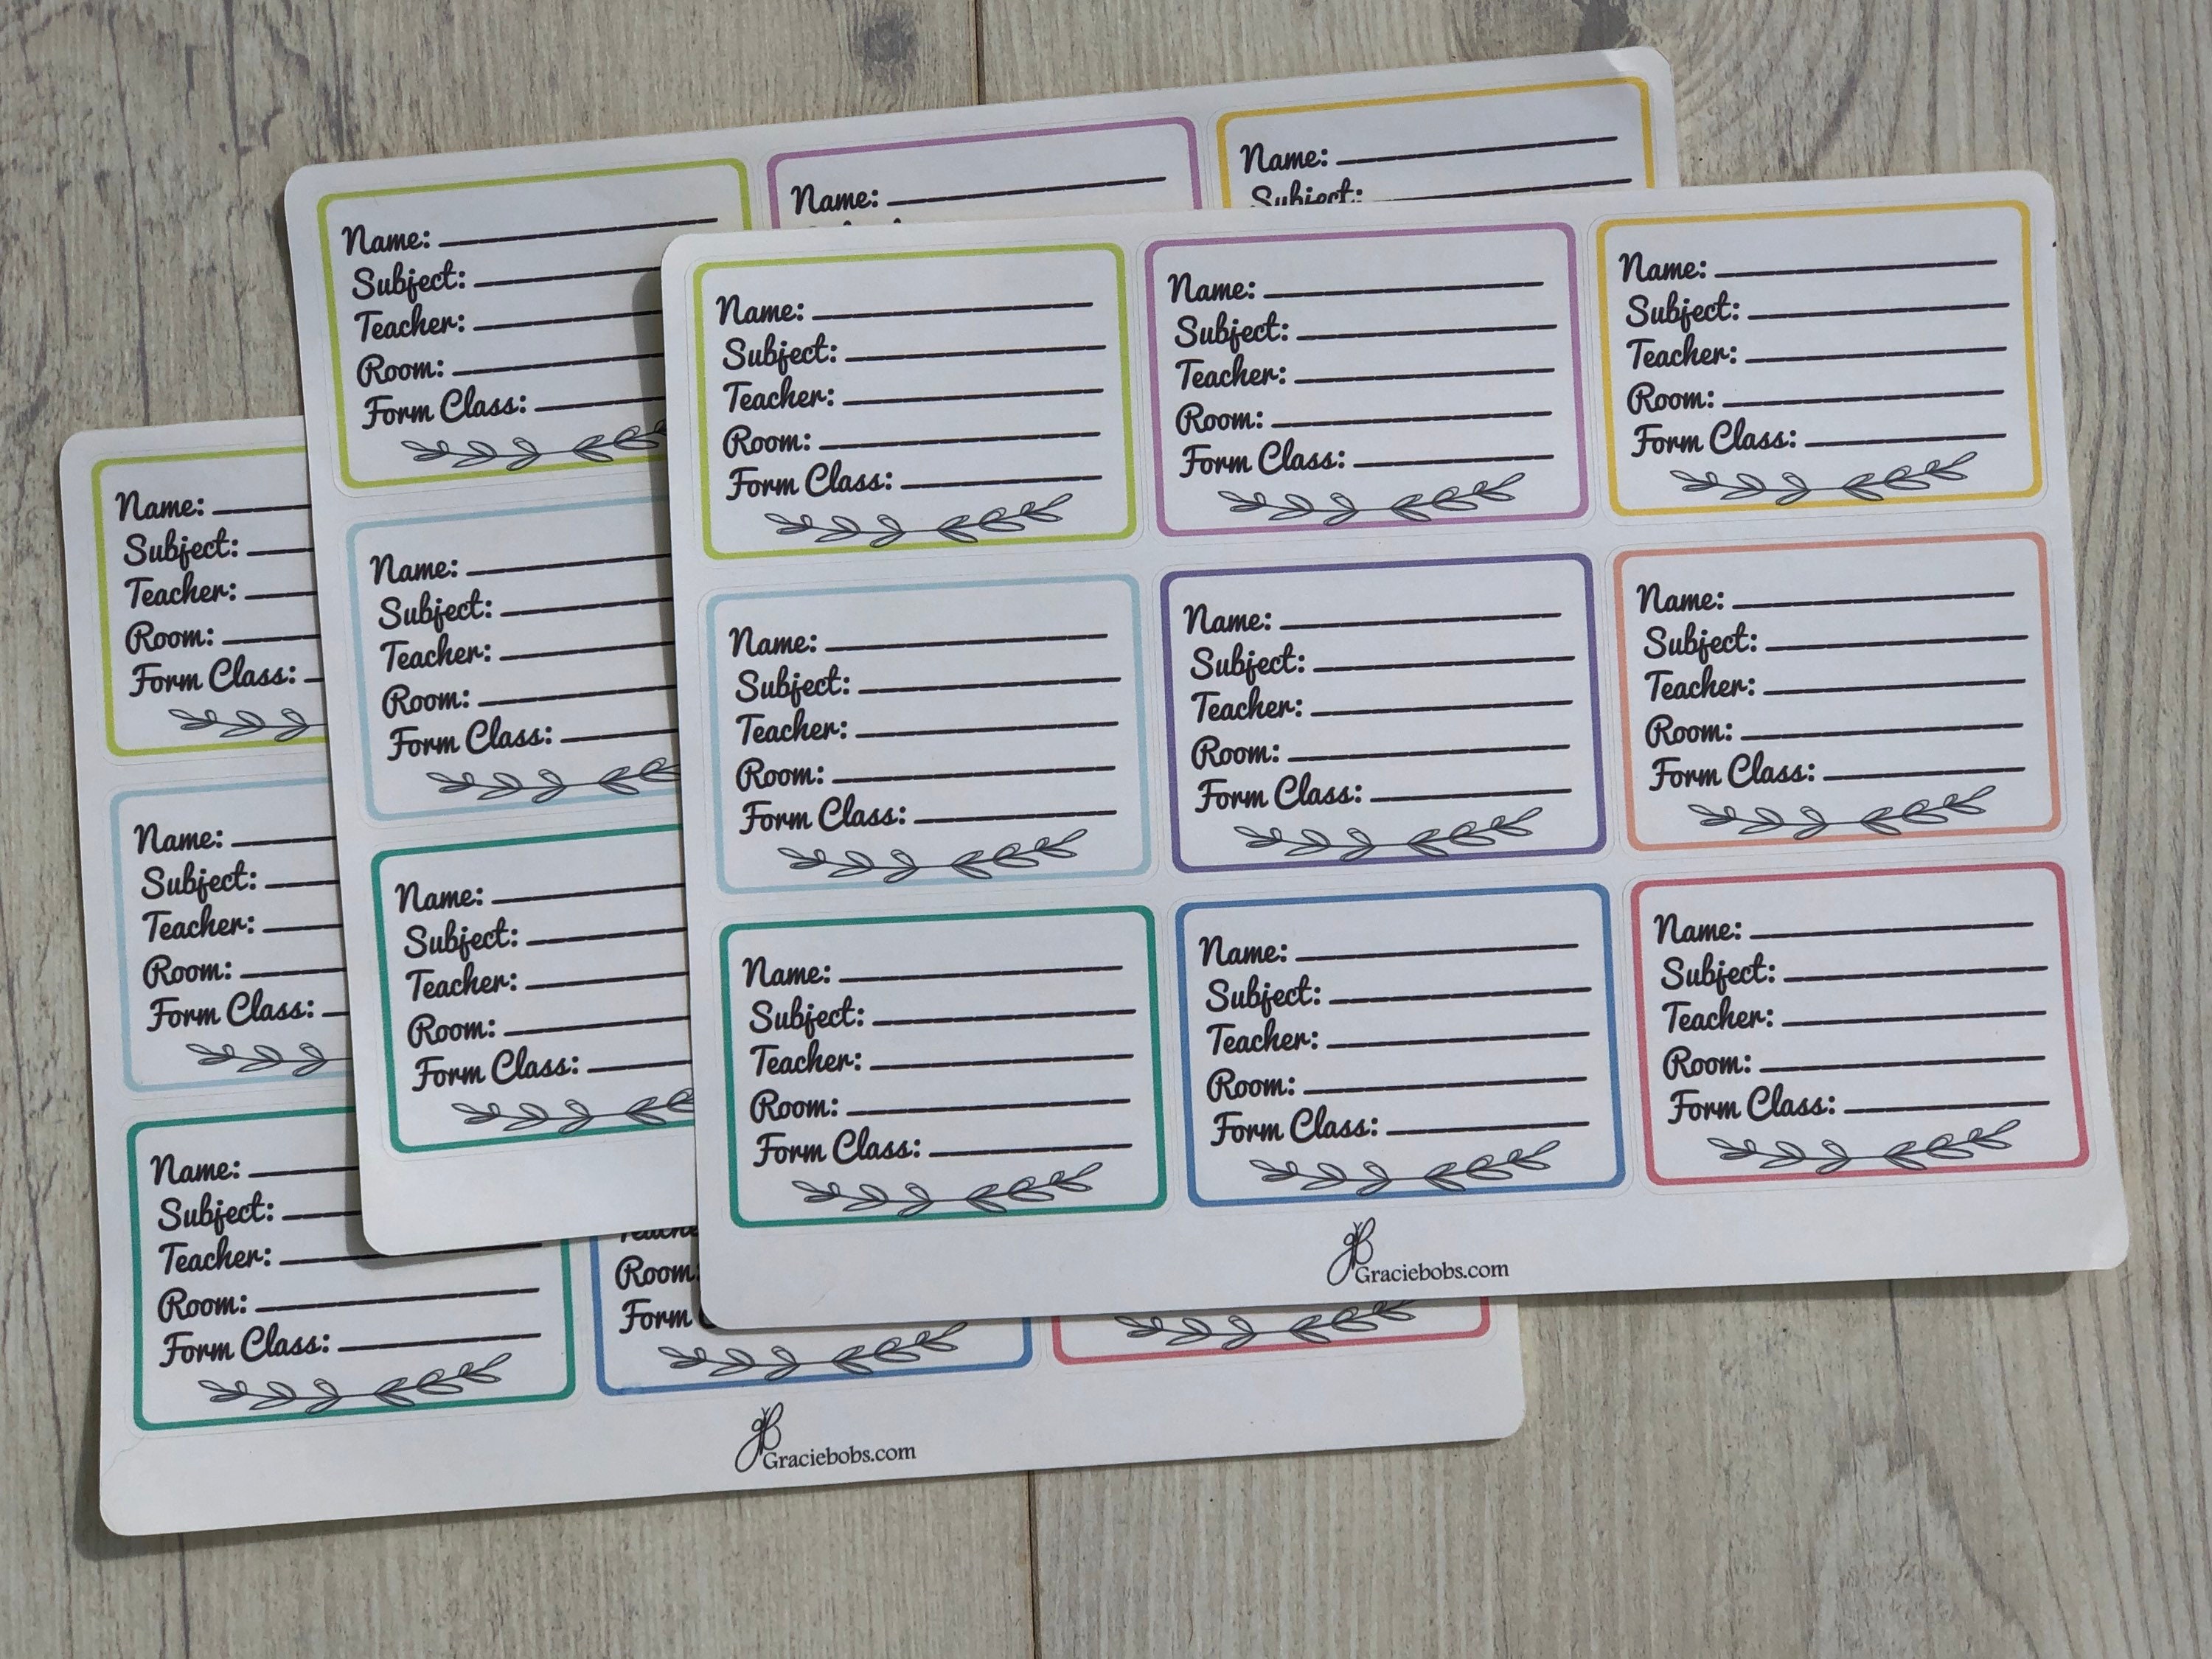 Name:
Name:
Name:
Subject:
Subject:
Teacher:
Room:
Form Class:
Name:
Subject:
Teacher:
Room:
Form Class:
Name:
Subject:
Teacher:
Room:
Form Class:
Name:
Subject:
Teacher:
Room:
Form Class:
Name:
Subject:
Teacher:
Room:
Form Class:
Name:
Subject:
Teacher:
Room:
Form Class:
Name:
Subject:
Teacher:
Room:
Form Class:
Name:
Subject:
Teacher:
Room:
Form Class:
Name:
Subject:
Teacher:
Room:
Form Class:
Name:
Subject:
Teacher:
Room:
Form Class:
Name:
Subject:
Teacher:
Room:
Form Class:
Name:
Subject:
Teacher:
Room:
Form Class:
Graciebobs.com
Name:
Subject:
Teacher:
Room:
Form Class:
Name:
Subject:
Teacher:
Room:
Form Class:
Name:
Subject:
Teacher:
Room:
Form Class:
Room:
Form
Graciebobs.com